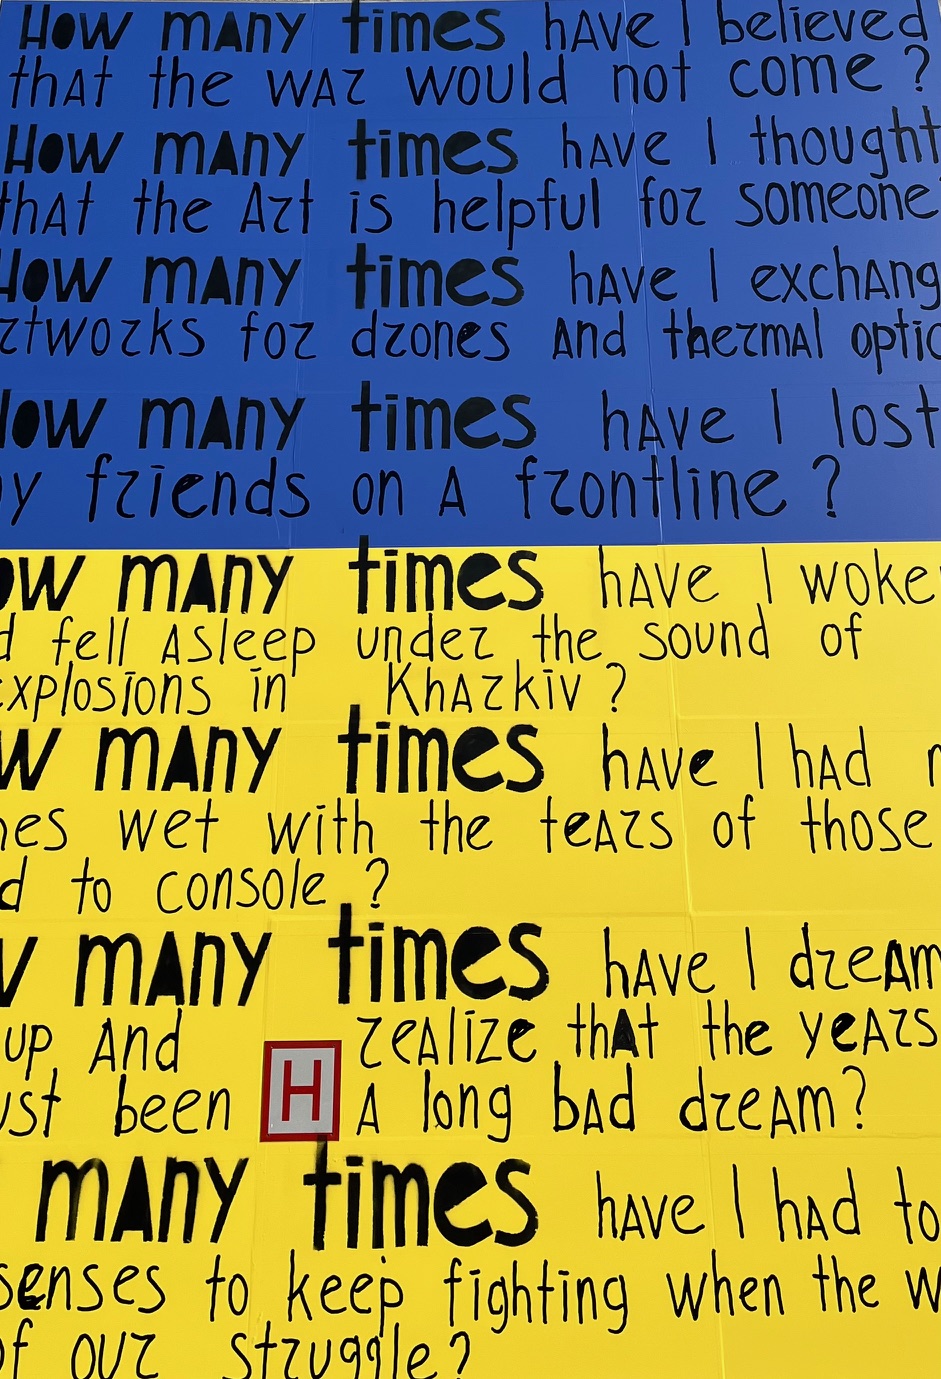 HOW mANy times hAve I believed
thAt the wAr would not come?
HOW mANy times hAve I thought
thAt the Art is helpful for someone
HOW mANy times hAve I exchAng
rtworks for drones And thermAl optic
HOW mANy times hAve I lost
y friends on A frontline?
ow mANy times hAve I woke
d fell Asleep under the sound of
explosions in KhArkiv?
w mANy times hAve I hAd
hes wet with the teArs of those
d to console?
w mANy times hAve I dreAm
up And reAlize thAt the yeArs
ust been H A long bAd dreAm?
mANy times hAve I hAd to
senses to keep fighting when the w
of our struggle?